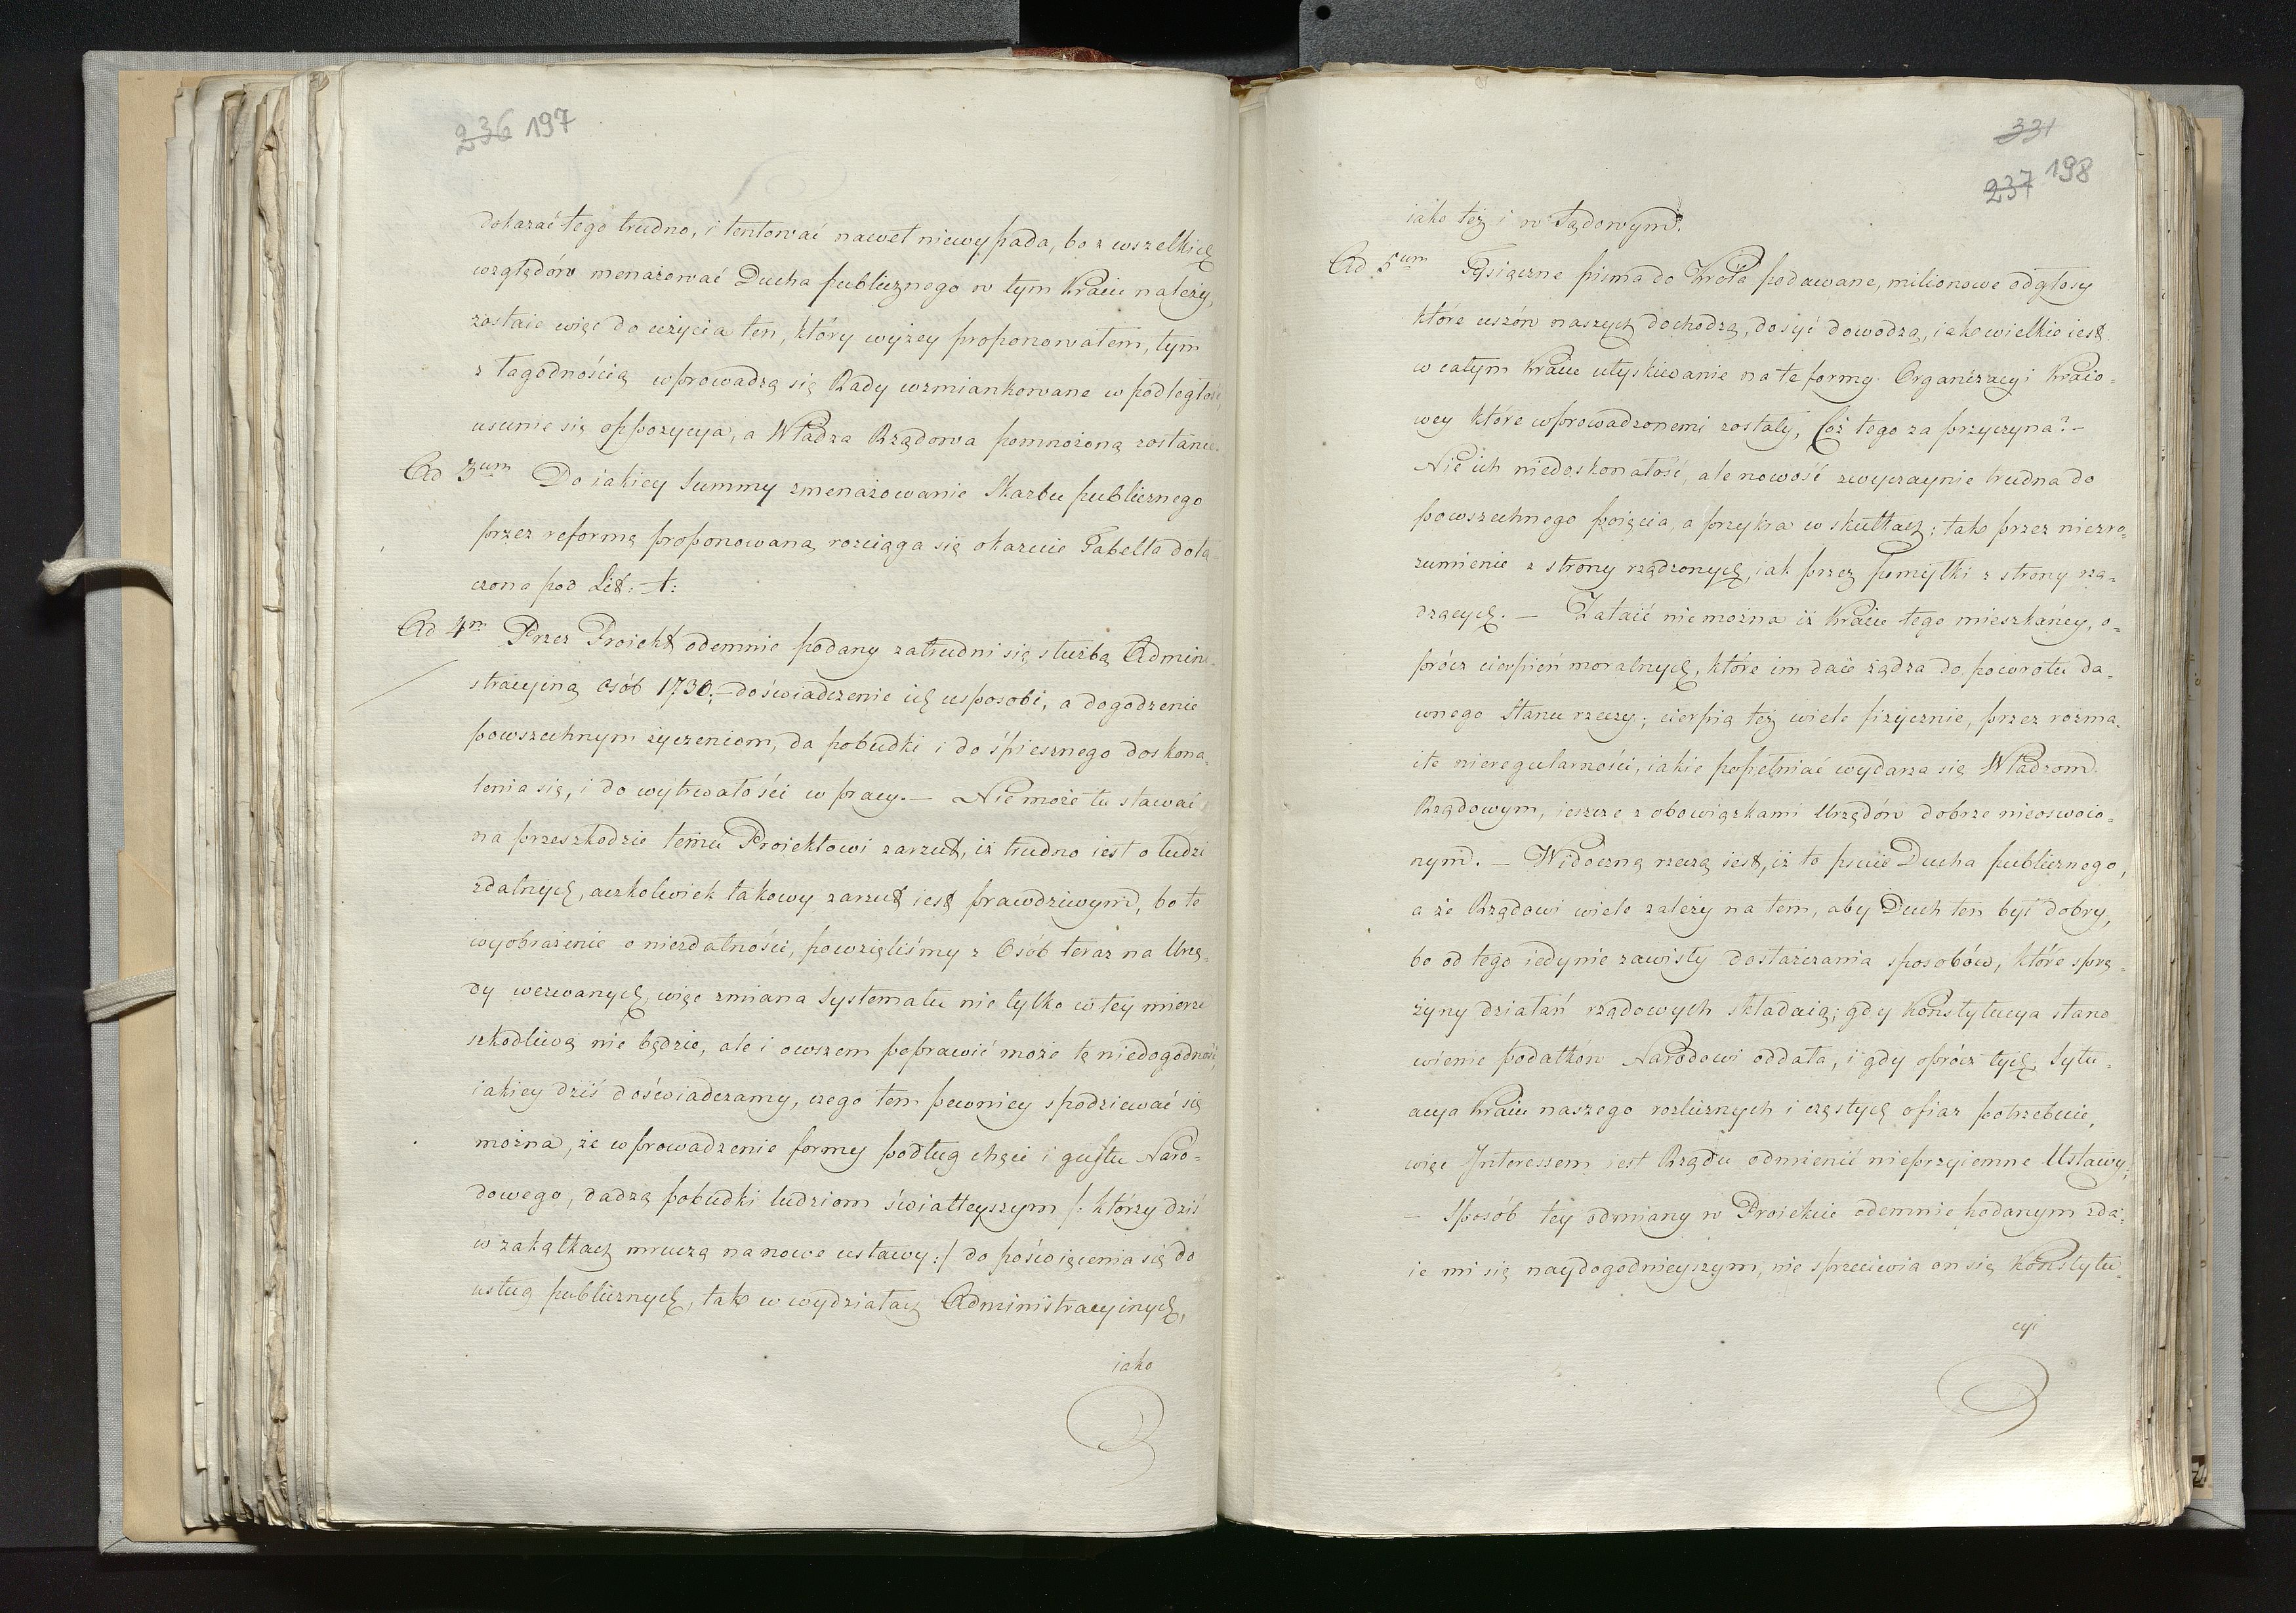 236 197
dokazać tego trudno, i tentować nawet niewypada, bo z wszelkich
względów menażować Ducha publicznego w tym Kraiu należy,
zostaie więc do użycia ten, który wyżey proponowałem, tym
z łagodnością wprowadzą się Rady wzmiankowane w podległość,
usunie się oppozycya, a Władza Rządowa pomnożoną zostanie.
Ad 3um Do iakiey Summy zmenażowanie Skarbu publicznego
przez reformę proponowaną rozciąga się okazuie Tabella dołą-
czona pod Lit: A:
Ad 4m Przez Proiekt odemnie podany zatrudni się służbą Admini-
stracyiną Osób 1730; – doświadczenie ich usposobi, a dogodzenie
powszechnym życzeniom, da pobudki i do śpiesznego doskona-
lenia się, i do wytrwałości w pracy. – Nie może tu stawać
na przeszkodzie temu Proiektowi zarzut, iż trudno iest o ludzi
zdatnych, aczkolwiek takowy zarzut iest prawdziwym, bo te
wyobrażenie o niezdatności, powzięliśmy z Osób teraz na Urzę-
dy wezwanych, więc zmiana Systematu nie tylko w tey mierze
szkodliwą nie będzie, ale i owszem poprawić może tę niedogodność,
iakiey dziś doświadczamy, czego tem pewniey spodziewać się
można, że wprowadzenie formy podług chęci i gustu Naro-
dowego, dadzą pobudki ludziom światleyszym /: którzy dziś
w zakątkach mruczą na nowe ustawy :/ do poświęcenia się do
usług publicznych, tak w wydziałach Administracyinych,
iako
331
237 198
iako też i w Sądowym.
Ad 5um Tysiączne pisma do Króla podawane, milionowe odgłosy
które uszów naszych dochodzą, dosyć dowodzą, iak wielkie iest
w całym Kraiu utyskiwanie na te formy Organizacyi Kraio-
wey które wprowadzonemi zostały, Cóż tego za przyczyna? –
Nie ich niedoskonałość, ale nowość zwyczaynie trudna do
powszechnego poięcia, a przykra w skutkach; tak przez niezro-
zumienie z strony rządzonych, iak przez pomyłki z strony rzą-
dzących. – Zataić niemożna iż Kraiu tego mieszkańcy, o-
prócz cierpień moralnych, które im daie żądza do powrotu da-
wnego Stanu rzeczy; cierpią też wiele fizycznie, przez rozma-
ite nieregularności, iakie popełniać wydarza się Władzom
Rządowym, ieszcze z obowiązkami Urzędów dobrze nieoswoio-
nym. – Widoczną rzeczą iest, iż to psuie Ducha publicznego,
a że Rządowi wiele zależy na tem, aby Duch ten był dobry,
bo od tego iedynie zawisły dostarczania sposobów, które sprę-
żyny działań rządowych składaią; gdy Konstytucya stano
wienie podatków Narodowi oddała, i gdy oprócz tych, Sytu-
acya Kraiu naszego rozlicznych i częstych ofiar potrzebuie,
więc Interessem iest Rządu odmienić nieprzyiemne Ustawy,
– Sposób tey odmiany w Proiekcie odemnie podanym zda-
ie mi się naydogodnieyszym, nie sprzeciwia on się Konstytu-
cyi